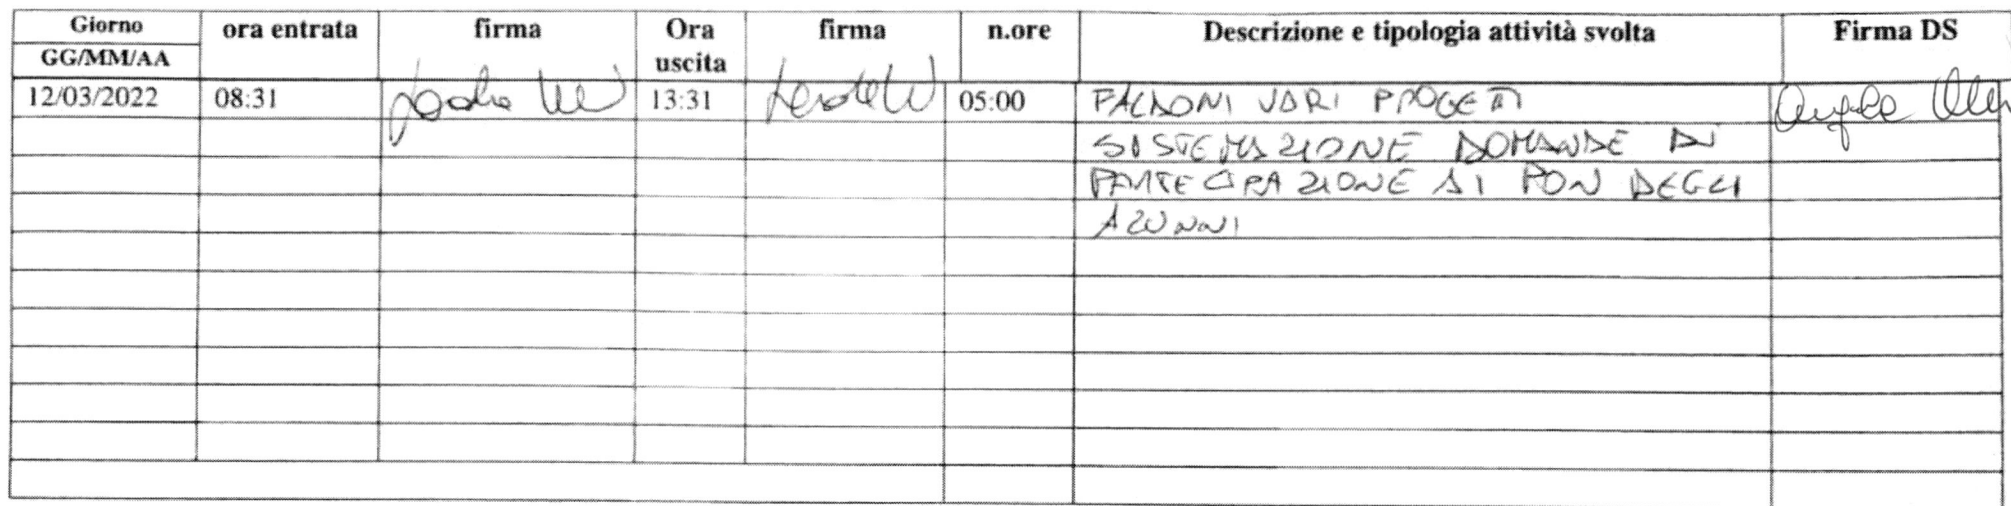 Giorno
GG/MM/AA
ora entrata
firma
Ora
uscita
firma
n.ore
Descrizione e tipologia attività svolta
Firma DS
12/03/2022 08:31 13:31 05:00 FALDONI VARI PROGETTI
SISTEMAZIONE DOMANDE DI
PARTECIPAZIONE AI PON DEGLI
ALUNNI